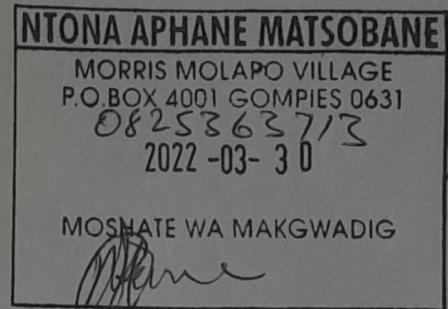 NTONA APHANE MATSOBANE
MORRIS MOLAPO VILLAGE
P.O.BOX 4001 GOMPIES 0631
0825363713
2022 -03- 30
MOSHATE WA MAKGWADIG